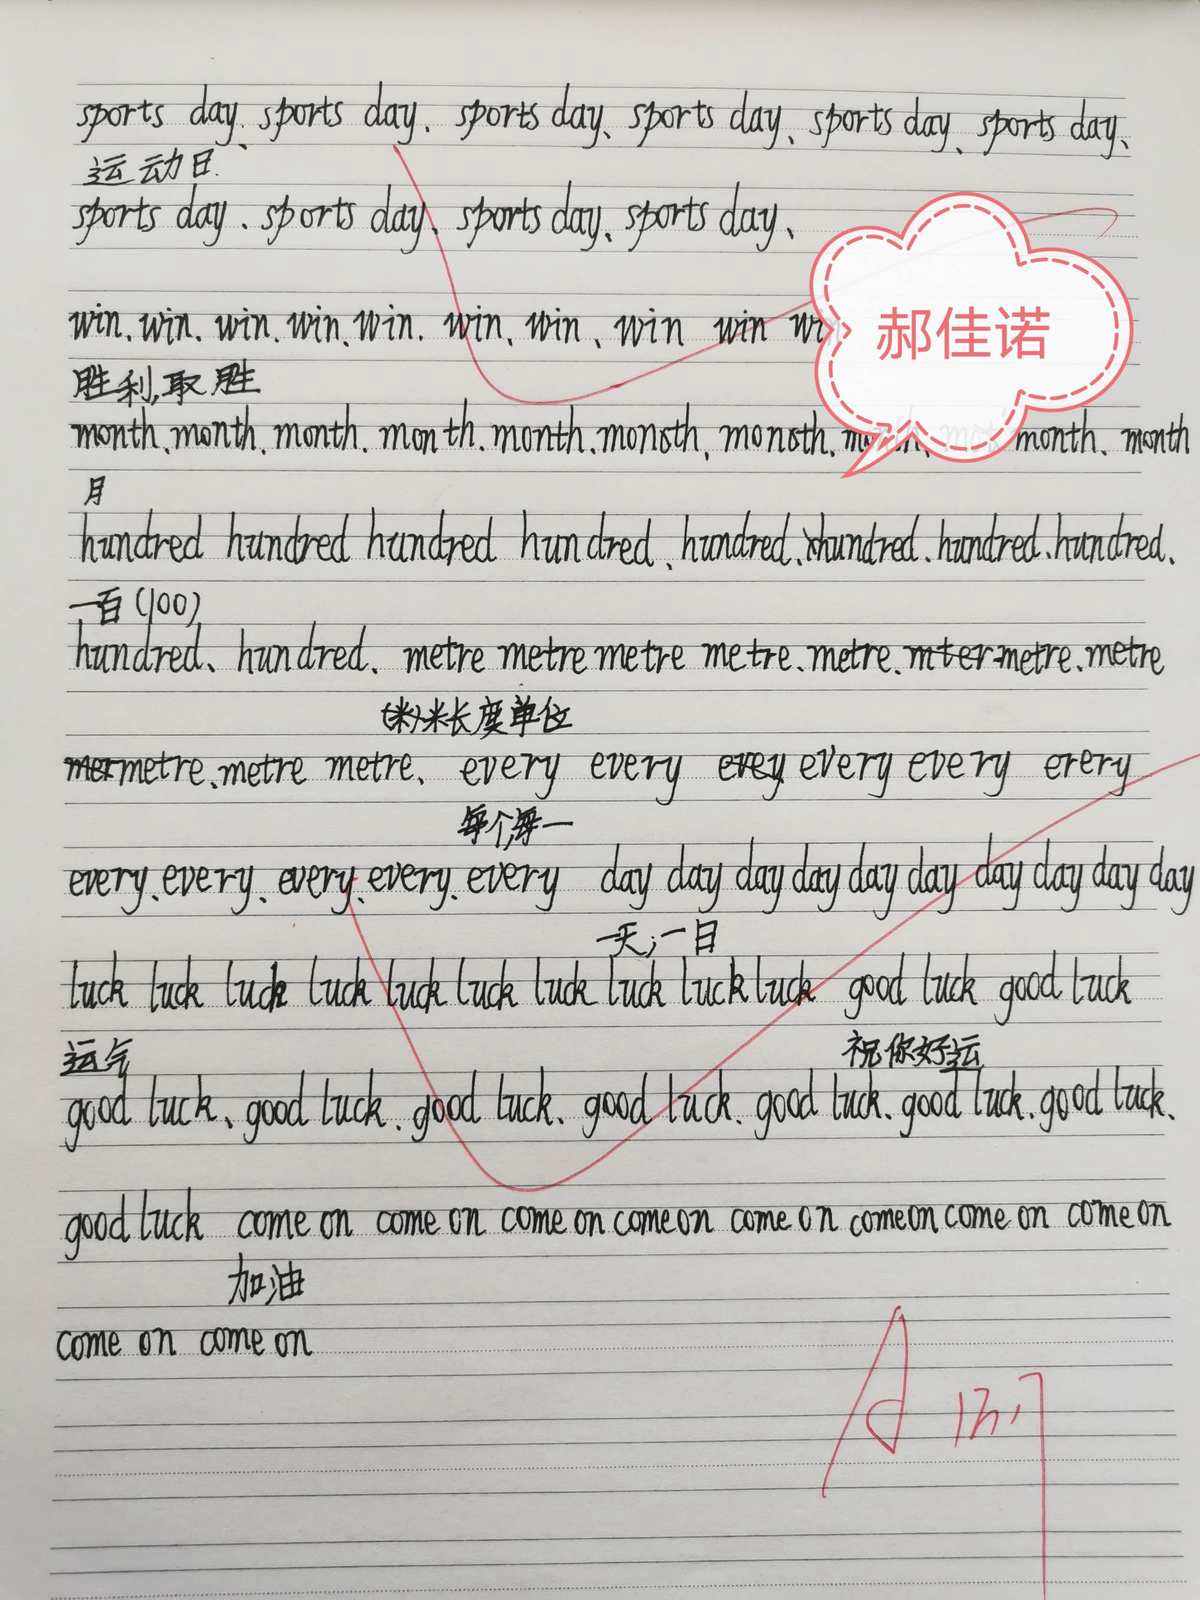 sports day、sports day、sports day、sports day、sports day、sports day、
运动日.
sports day、sports day、sports day、sports day、
win、win、win、win、win、win、win、win win
郝佳诺
胜利,取胜
month、month、month、month、month、monsth、monsth、month、month
月
hundred hundred hundred hundred、hundred、hundred、hundred、hundred、
一百(100)
hundred、hundred、metre metre metre metre、metre、mter metre、metre
(米)米长度单位
mer metre、metre metre、every every evey every every erery
每个,每一
every、every、every、every、every day day day day day day day day day day
一天;一日
luck luck luck luck luck luck luck luck luck luck good luck good luck
运气 祝你好运
good luck、good luck、good luck、good luck、good luck、good luck、good luck、
good luck come on come on come on come on come on come on come on come on
加油
come on come on
A